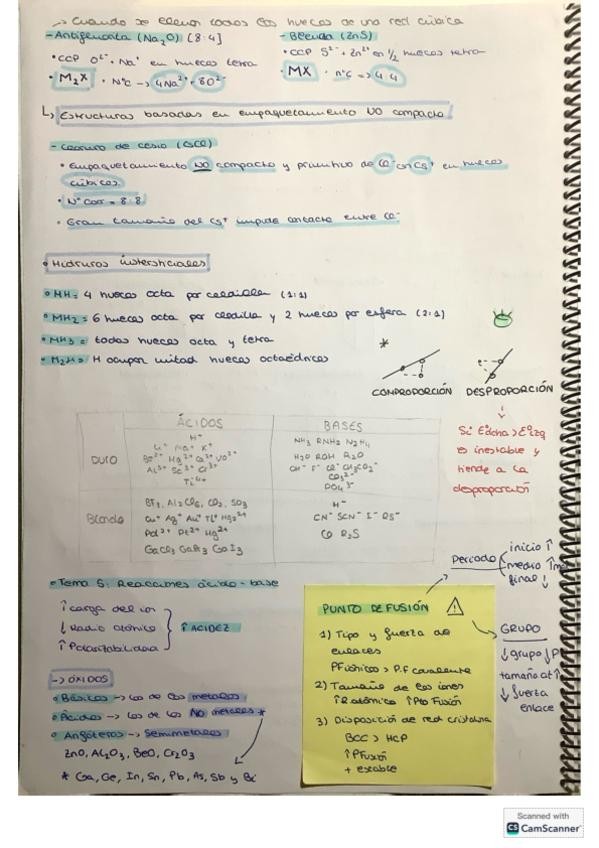 → Cuando se llenan todos los huecos de una red cúbica
- Antifluorita (Na2O) [8:4]
• CCP O2- + Na+ en huecos tetra
• M2X • NºC → 4Na2+ 8O2-
- Blenda (ZnS)
• CCP S2- + Zn2+ en 1/2 huecos tetra-
• MX • nºC => 4:4
↳ Estructuras basadas en empaquetamiento NO compacto
- Cloruro de cesio (CsCl)
• Empaquetamiento NO compacto y primitivo de Cl- con Cs+ en huecos
cúbicos.
• Nº Coor = 8:8
• Gran tamaño del Cs+ impide contacto entre Cl-
• Hidruros intersticiales
• MH = 4 huecos octa por celdilla (1:1)
• MH2 = 6 huecos octa por celdilla y 2 huecos por esfera (2:1)
• MH3 = todos huecos octa y tetra
• M2H = H ocupan mitad huecos octaédricos
*
COMPROPORCIÓN DESPROPORCIÓN
Si Eºdcha > Eºizq
es inestable y
tiende a la
desproporción
ÁCIDOS BASES
DURO
H+
Li+ Na+ K+
Be2+ Mg2+ Ca2+ VO2+
Al3+ Sc3+ Cr3+
Ti4+
NH3 RNH2 N2H4
H2O ROH R2O
OH- F- Cl- CH3CO2-
CO3 2-
PO4 3-
Blando
BF3, Al2Cl6, CO2, SO3
Cu+ Ag+ Au+ Tl+ Hg2 2+
Pd2+ Pt2+ Hg2+
GaCl3 GaBr3 GaI3
H-
CN- SCN- I- RS-
CO R2S
• Tema 5: Reacciones ácido-base
↑ carga del ion
↓ Radio atómico
↑ Polarizabilidad
↑ ACIDEZ
→ ÓXIDOS
• Básicos → los de los metales
• Ácidos → los de los NO metales *
• Anfóteros → Semimetales
ZnO, Al2O3, BeO, Cr2O3
* Ga, Ge, In, Sn, Pb, As, Sb y Bi
PUNTO DE FUSIÓN
1) Tipo y fuerza de
enlaces
PF iónico > P.F covalente
2) Tamaño de los iones
↑ R atómico ↑ Pto Fusión
3) Disposición de red cristalina
BCC > HCP
↑ PFusión
+ estable
Periodo
inicio ↑
medio ↑
final ↓
GRUPO
↓ grupo ↓
tamaño at ↑
↓ fuerza
enlace
Scanned with
CS CamScanner